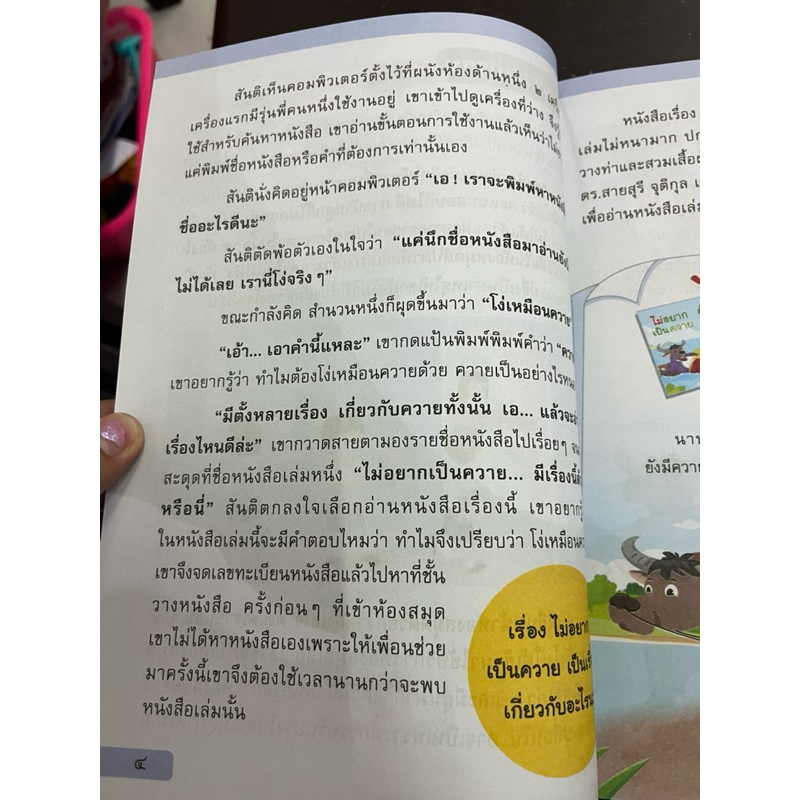 สันติเห็นคอมพิวเตอร์ตั้งไว้ที่ผนังห้องด้านหนึ่ง ๒
เครื่องแรกมีรุ่นพี่คนหนึ่งใช้งานอยู่ เขาเข้าไปดูเครื่องที่ว่าง
ใช้สำหรับค้นหาหนังสือ เขาอ่านขั้นตอนการใช้งานแล้วเห็นว่า
แค่พิมพ์ชื่อหนังสือหรือคำที่ต้องการเท่านั้นเอง
สันตินั่งคิดอยู่หน้าคอมพิวเตอร์ “เอ ! เราจะพิมพ์หา
ชื่ออะไรดีนะ”
สันติตัดพ้อตัวเองในใจว่า “แค่นึกชื่อหนังสือมาอ่าน
ไม่ได้เลย เรานี่โง่จริง ๆ”
ขณะกำลังคิด สำนวนหนึ่งก็ผุดขึ้นมาว่า “โง่เหมือนควาย
“เอ้า... เอาคำนี้แหละ” เขากดแป้นพิมพ์พิมพ์คำว่า
เขาอยากรู้ว่า ทำไมต้องโง่เหมือนควายด้วย ควายเป็นอย่างไร
“มีตั้งหลายเรื่อง เกี่ยวกับควายทั้งนั้น เอ... แล้วจะ
เรื่องไหนดีล่ะ” เขากวาดสายตามองรายชื่อหนังสือไปเรื่อยๆ
สะดุดที่ชื่อหนังสือเล่มหนึ่ง “ไม่อยากเป็นควาย... มีเรื่องนี้
หรือนี่” สันติตกลงใจเลือกอ่านหนังสือเรื่องนี้ เขาอยาก
ในหนังสือเล่มนี้จะมีคำตอบไหมว่า ทำไมจึงเปรียบว่า โง่เหมือน
เขาจึงจดเลขทะเบียนหนังสือแล้วไปหาที่ชั้น
วางหนังสือ ครั้งก่อนๆ ที่เข้าห้องสมุด
เขาไม่ได้หาหนังสือเองเพราะให้เพื่อนช่วย
มาครั้งนี้เขาจึงต้องใช้เวลานานกว่าจะพบ
หนังสือเล่มนั้น
เรื่อง ไม่อยาก
เป็นควาย เป็น
เกี่ยวกับอะไร
๔
หนังสือเรื่อง
เล่มไม่หนามาก
วางท่าและสวมเสื้อ
ดร.สายสุรี จุติกุล
เพื่ออ่านหนังสือ
ไม่อยาก
เป็นควาย
นาน
ยังมีควาย